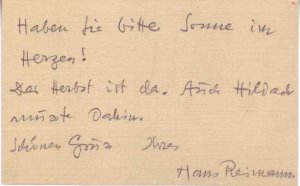 Haben Sie bitte Sonne im
Herzen!
Der Herbst ist da. Auch
musste dahin.
Schönen Gruss Ihres
Hans Reimann